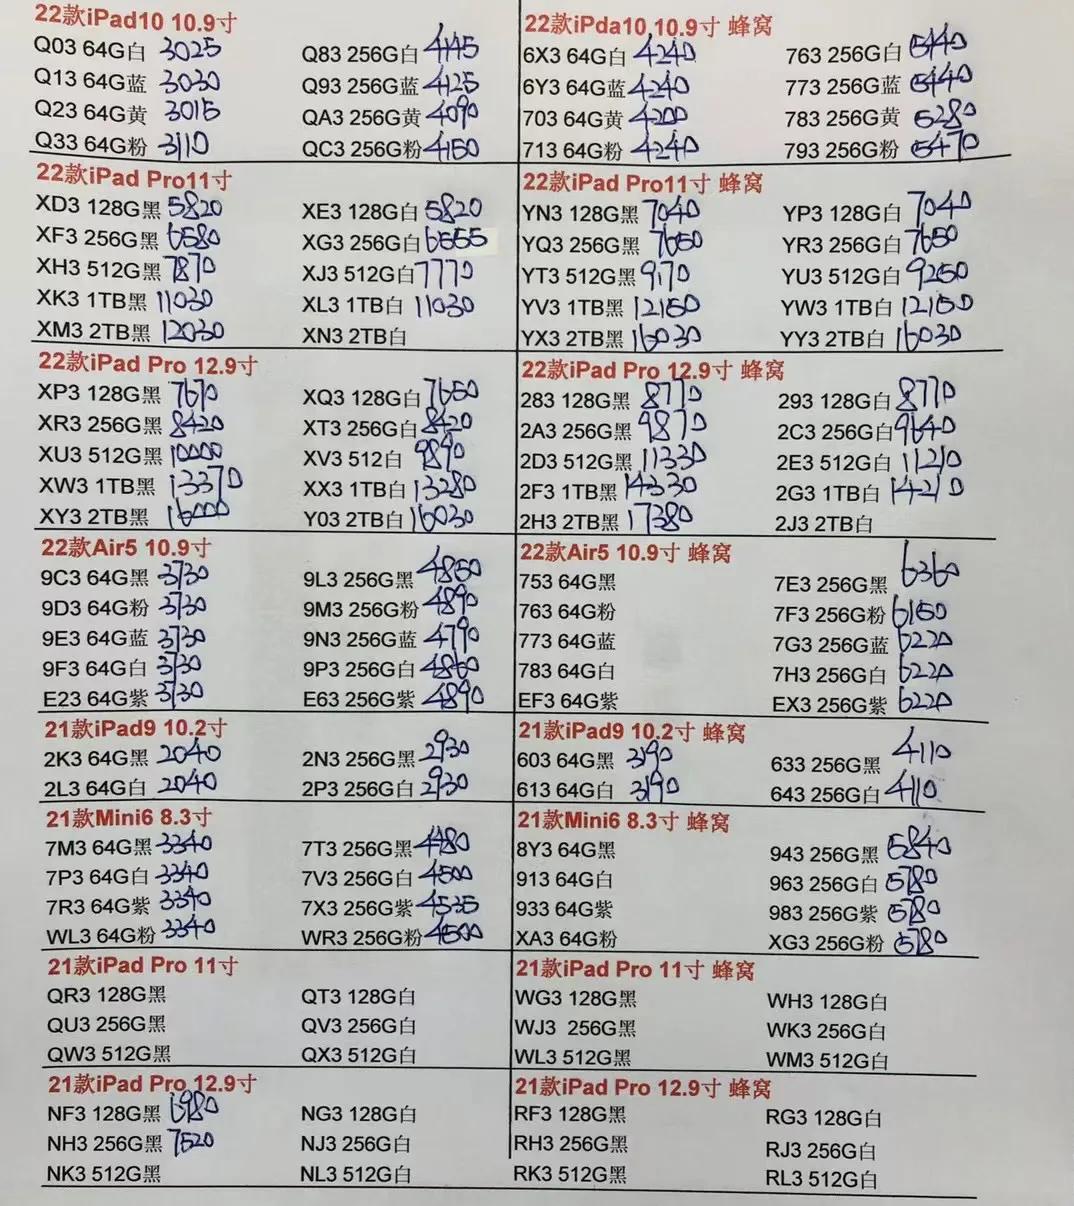 22款iPad10 10.9寸
Q03 64G白 3025 Q83 256G白 4145
Q13 64G蓝 3030 Q93 256G蓝 4125
Q23 64G黄 3015 QA3 256G黄 4090
Q33 64G粉 3110 QC3 256G粉 4150
22款iPda10 10.9寸 蜂窝
6X3 64G白 4240 763 256G白 5440
6Y3 64G蓝 4240 773 256G蓝 5440
703 64G黄 4200 783 256G黄 5280
713 64G粉 4240 793 256G粉 5470
22款iPad Pro11寸
XD3 128G黑 5820 XE3 128G白 5820
XF3 256G黑 6580 XG3 256G白 6555
XH3 512G黑 7870 XJ3 512G白 7770
XK3 1TB黑 11030 XL3 1TB白 11030
XM3 2TB黑 12030 XN3 2TB白
22款iPad Pro11寸 蜂窝
YN3 128G黑 7040 YP3 128G白 7040
YQ3 256G黑 7650 YR3 256G白 7650
YT3 512G黑 9170 YU3 512G白 9250
YV3 1TB黑 12150 YW3 1TB白 12150
YX3 2TB黑 16030 YY3 2TB白 16030
22款iPad Pro 12.9寸
XP3 128G黑 7670 XQ3 128G白 7650
XR3 256G黑 8420 XT3 256G白 8420
XU3 512G黑 10000 XV3 512白 9890
XW3 1TB黑 13370 XX3 1TB白 13280
XY3 2TB黑 16000 Y03 2TB白 16030
22款iPad Pro 12.9寸 蜂窝
283 128G黑 8770 293 128G白 8770
2A3 256G黑 9870 2C3 256G白 9640
2D3 512G黑 11330 2E3 512G白 11210
2F3 1TB黑 14330 2G3 1TB白 14210
2H3 2TB黑 17380 2J3 2TB白
22款Air5 10.9寸
9C3 64G黑 3730 9L3 256G黑 4850
9D3 64G粉 3730 9M3 256G粉 4890
9E3 64G蓝 3730 9N3 256G蓝 4790
9F3 64G白 3730 9P3 256G白 4860
E23 64G紫 3730 E63 256G紫 4890
22款Air5 10.9寸 蜂窝
753 64G黑 7E3 256G黑 6360
763 64G粉 7F3 256G粉 6150
773 64G蓝 7G3 256G蓝 6220
783 64G白 7H3 256G白 6220
EF3 64G紫 EX3 256G紫 6220
21款iPad9 10.2寸
2K3 64G黑 2040 2N3 256G黑 2930
2L3 64G白 2040 2P3 256G白 2930
21款iPad9 10.2寸 蜂窝
603 64G黑 3190 633 256G黑 4110
613 64G白 3190 643 256G白 4110
21款Mini6 8.3寸
7M3 64G黑 3340 7T3 256G黑 4480
7P3 64G白 3340 7V3 256G白 4500
7R3 64G紫 3340 7X3 256G紫 4535
WL3 64G粉 3340 WR3 256G粉 4500
21款Mini6 8.3寸 蜂窝
8Y3 64G黑 943 256G黑 5840
913 64G白 963 256G白 5780
933 64G紫 983 256G紫 5780
XA3 64G粉 XG3 256G粉 5780
21款iPad Pro 11寸
QR3 128G黑 QT3 128G白
QU3 256G黑 QV3 256G白
QW3 512G黑 QX3 512G白
21款iPad Pro 11寸 蜂窝
WG3 128G黑 WH3 128G白
WJ3 256G黑 WK3 256G白
WL3 512G黑 WM3 512G白
21款iPad Pro 12.9寸
NF3 128G黑 6980 NG3 128G白
NH3 256G黑 7520 NJ3 256G白
NK3 512G黑 NL3 512G白
21款iPad Pro 12.9寸 蜂窝
RF3 128G黑 RG3 128G白
RH3 256G黑 RJ3 256G白
RK3 512G黑 RL3 512G白